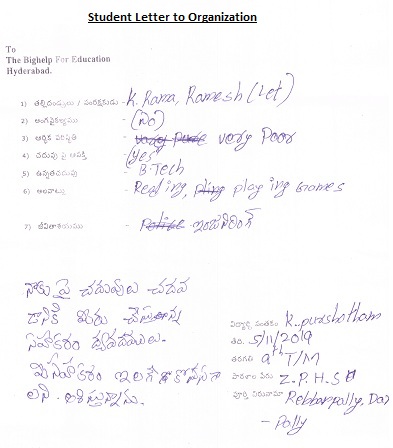 Student Letter to Organization
To
The Bighelp For Education
Hyderabad.
1) తల్లిదండ్రులు / సంరక్షకుడు - K. Rama, Ramesh (Let)
2) అంగవైకల్యము - (No)
3) ఆర్థిక పరిస్థితి - very Poor
4) చదువు పై ఆసక్తి - (yes)
5) ఉన్నత చదువు - B.Tech
6) అలవాట్లు - Reading, playing Games
7) జీవితాశయము - ఇంజనీరింగ్
నాకు పై చదువులు చదవ
డానికి మీరు చేస్తున్న
సహకారం
మీ సహకారం ఇలాగే కొనసాగా
లని ఆశిస్తున్నాను.
విద్యార్థి సంతకం K. purushotham
తేది. 5/11/2019
తరగతి 9th T/M
పాఠశాల పేరు Z.P.H.S
పూర్తి చిరునామా
- Polly